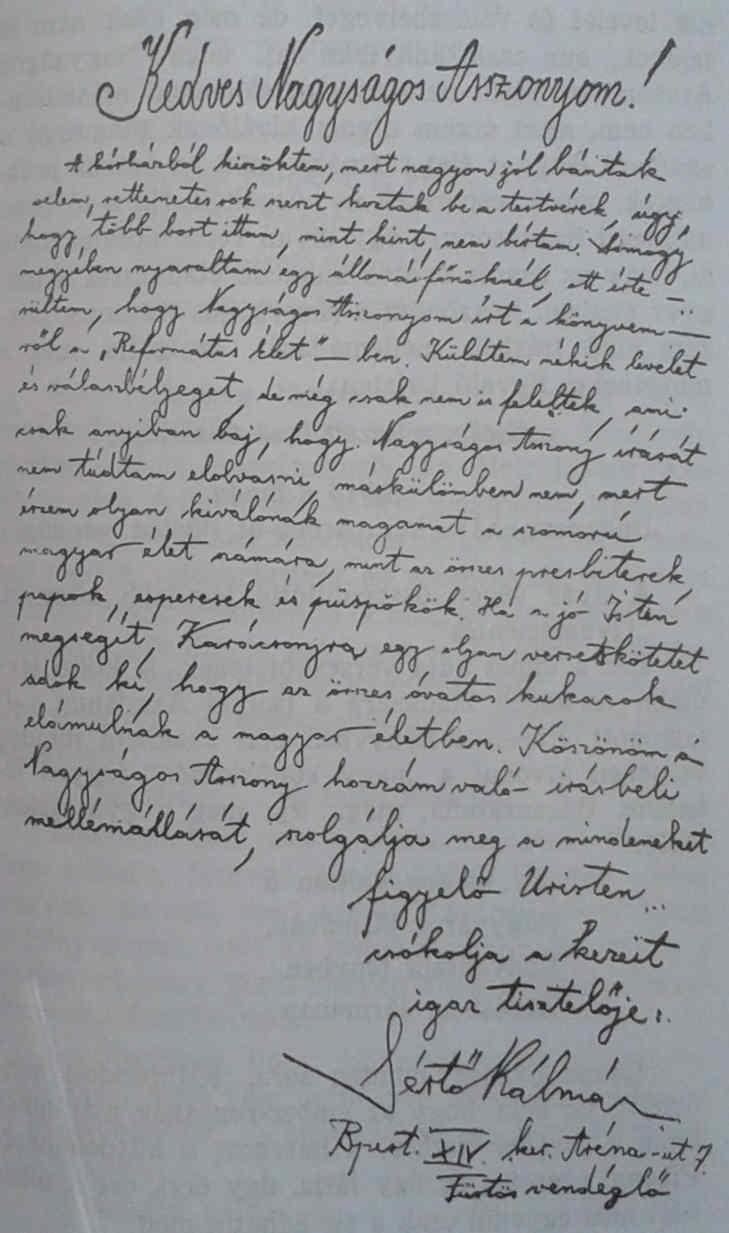 Kedves Nagyságos Asszonyom!
A kórházból kiszöktem, mert nagyon jól bántak
velem, rettenetes sok szeszt hoztak be a testvérek, úgy,
hogy több bort ittam, mint kint, nem bírtam. Somogy
megyében nyaraltam egy állomásfőnöknél, ott érte-
sültem, hogy Nagyságos Asszonyom írt a könyvem-
ről a „Református Élet"-ben. Küldtem nékik levelet
és válaszbélyeget, de még csak nem is feleltek, ami
csak anyiban baj, hogy Nagyságos Asszony írását
nem tudtam elolvasni, máskülömben nem, mert
érzem olyan kiválónak magamat a szomorú
magyar élet számára, mint az összes presbiterek,
papok, esperesek és püspökök. Ha a jó Isten
megsegít, Karácsonyra egy olyan verseskötetet
adok ki, hogy az összes óvatos kukacok
elámulnak a magyar életben. Köszönöm a
Nagyságos Asszony hozzám való írásbeli
mellémállását, szolgálja meg a mindeneket
figyelő Uristen...
csókolja a kezeit
igaz tisztelője:
Sértő Kálmán
Bpest. XIV. ker. Aréna-út 7.
Füstös vendéglő